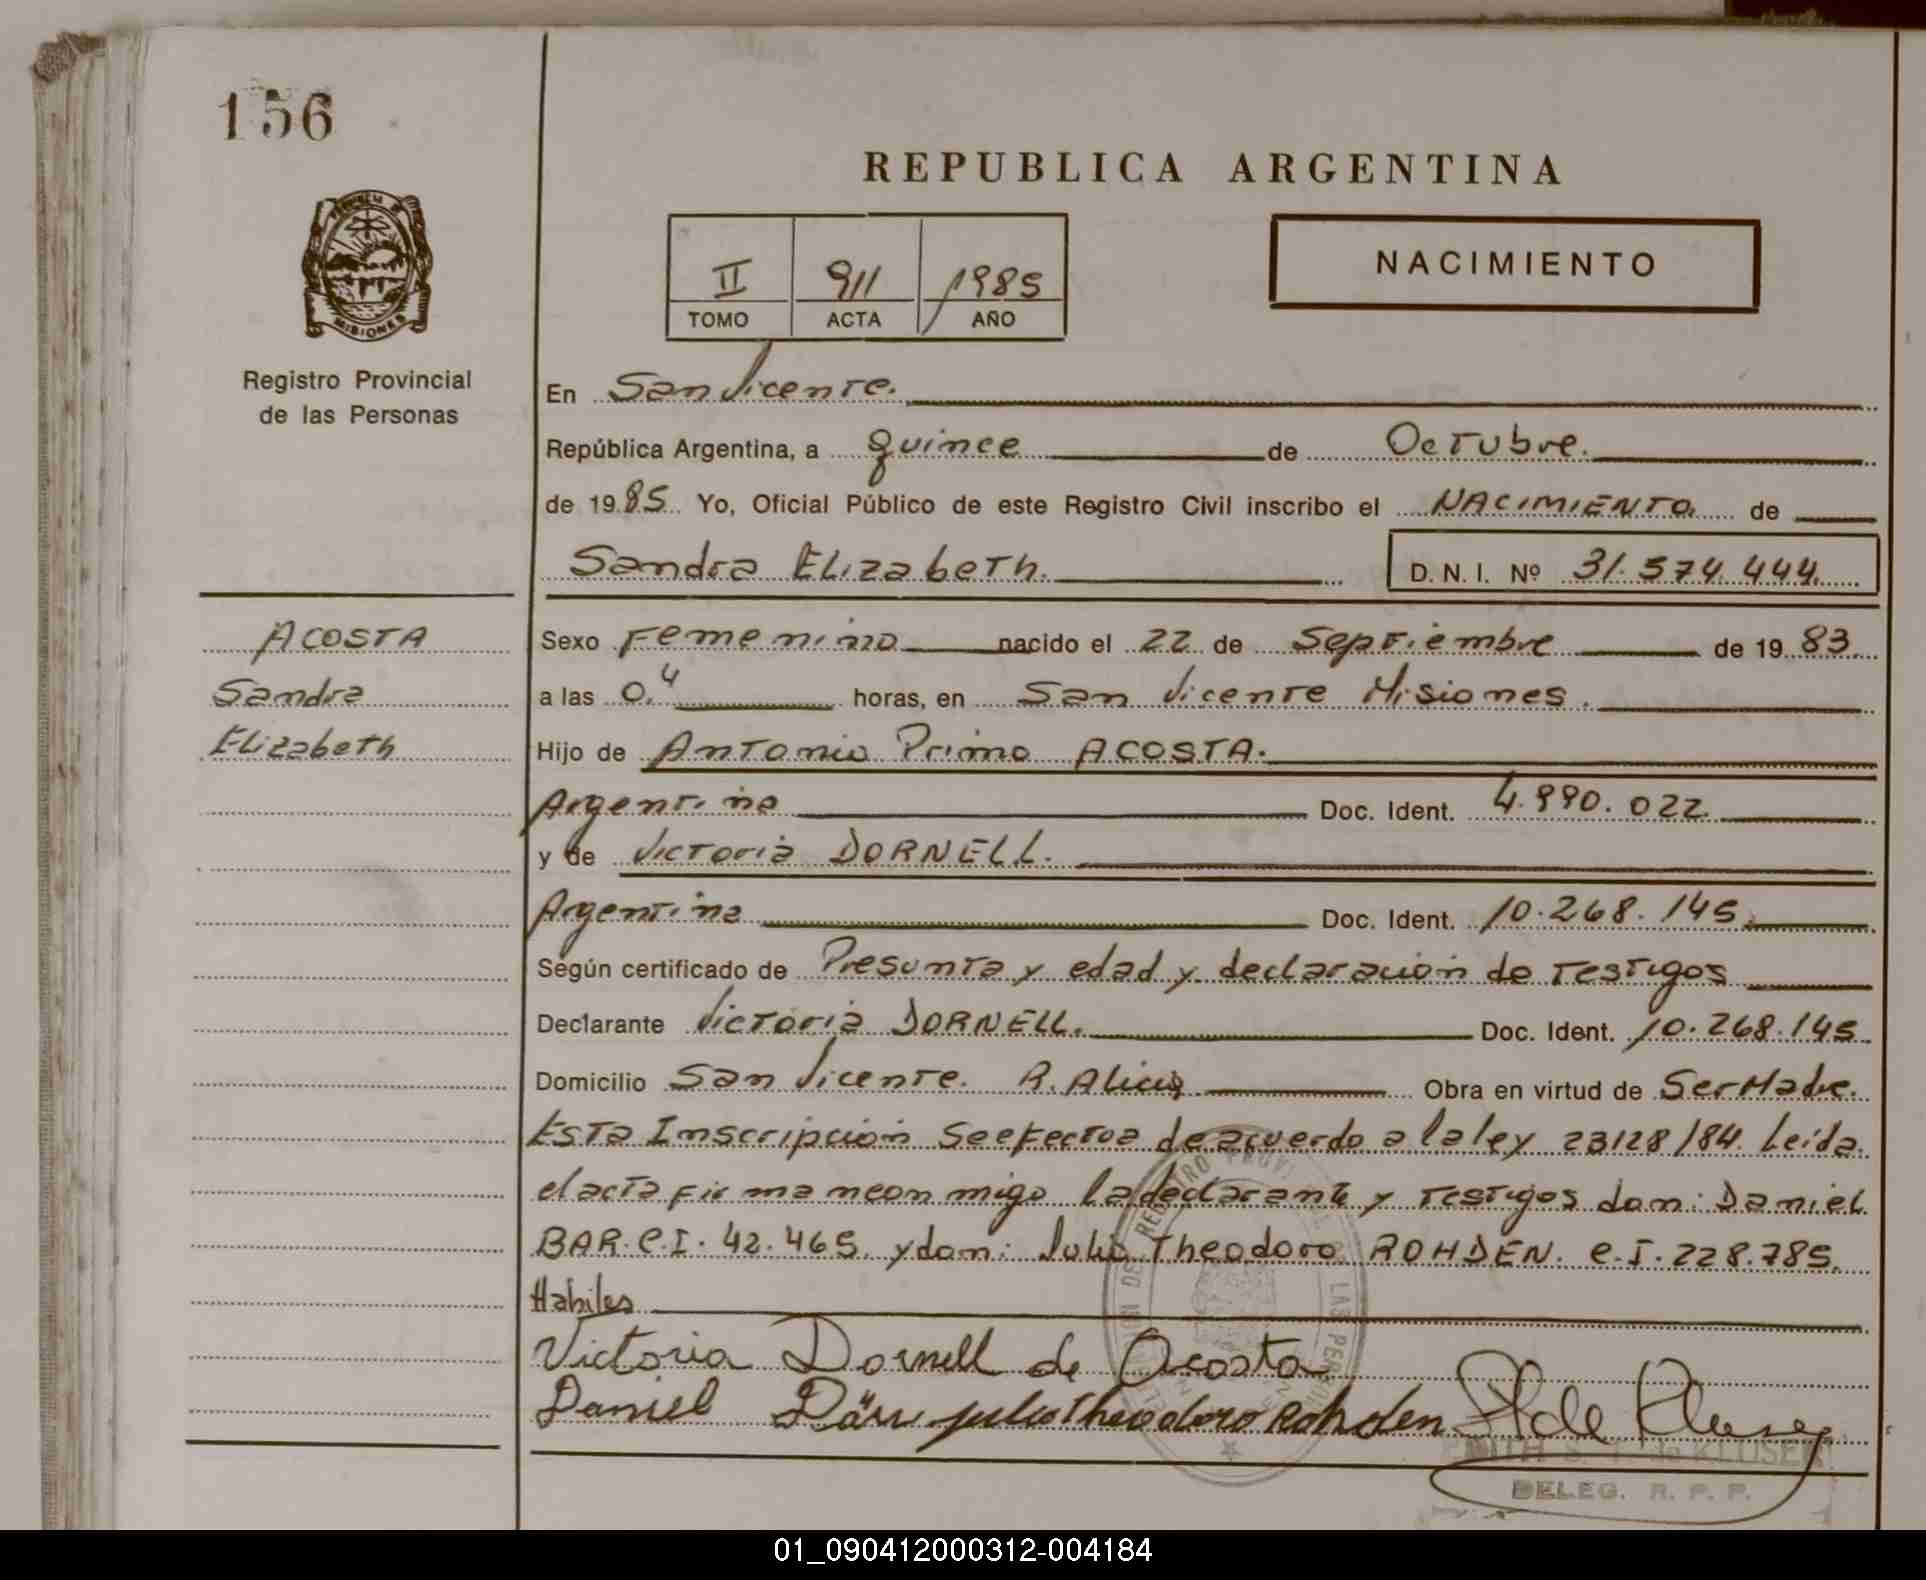 156
REPUBLICA ARGENTINA
II 911 1985
TOMO ACTA AÑO
NACIMIENTO
PROVINCIA DE
MISIONES
Registro Provincial
de las Personas
En San Vicente.
República Argentina, a quince de Octubre.
de 1985 Yo, Oficial Público de este Registro Civil inscribo el NACIMIENTO. de
Sandra Elizabeth. D. N. I. Nº 31.574.444.
ACOSTA
Sandra
Elizabeth
Sexo Femenino nacido el 22 de Septiembre de 1983
a las 0,4 horas, en San Vicente Misiones.
Hijo de Antonio Primo ACOSTA.
Argentina Doc. Ident. 4.990.022
y de Victoria DORNELL.
Argentina Doc. Ident. 10.268.145.
Según certificado de Presunta y edad y declaración de testigos
Declarante Victoria DORNELL. Doc. Ident. 10.268.145
Domicilio San Vicente. R. Alicia Obra en virtud de Ser Madre.
Esta Inscripción se efectua de acuerdo a la ley 23128/84. Leída
el acta firman conmigo la declarante y testigos don: Daniel
BAR. C.I. 42.465. y don: Julio Theodoro ROHDEN. C.I. 228.785.
Habiles
Victoria Dornell de Acosta
Daniel Där Julio Theodoro Rohden
S. T. de KLUSENER
DELEG. R. P. P.
01_090412000312-004184